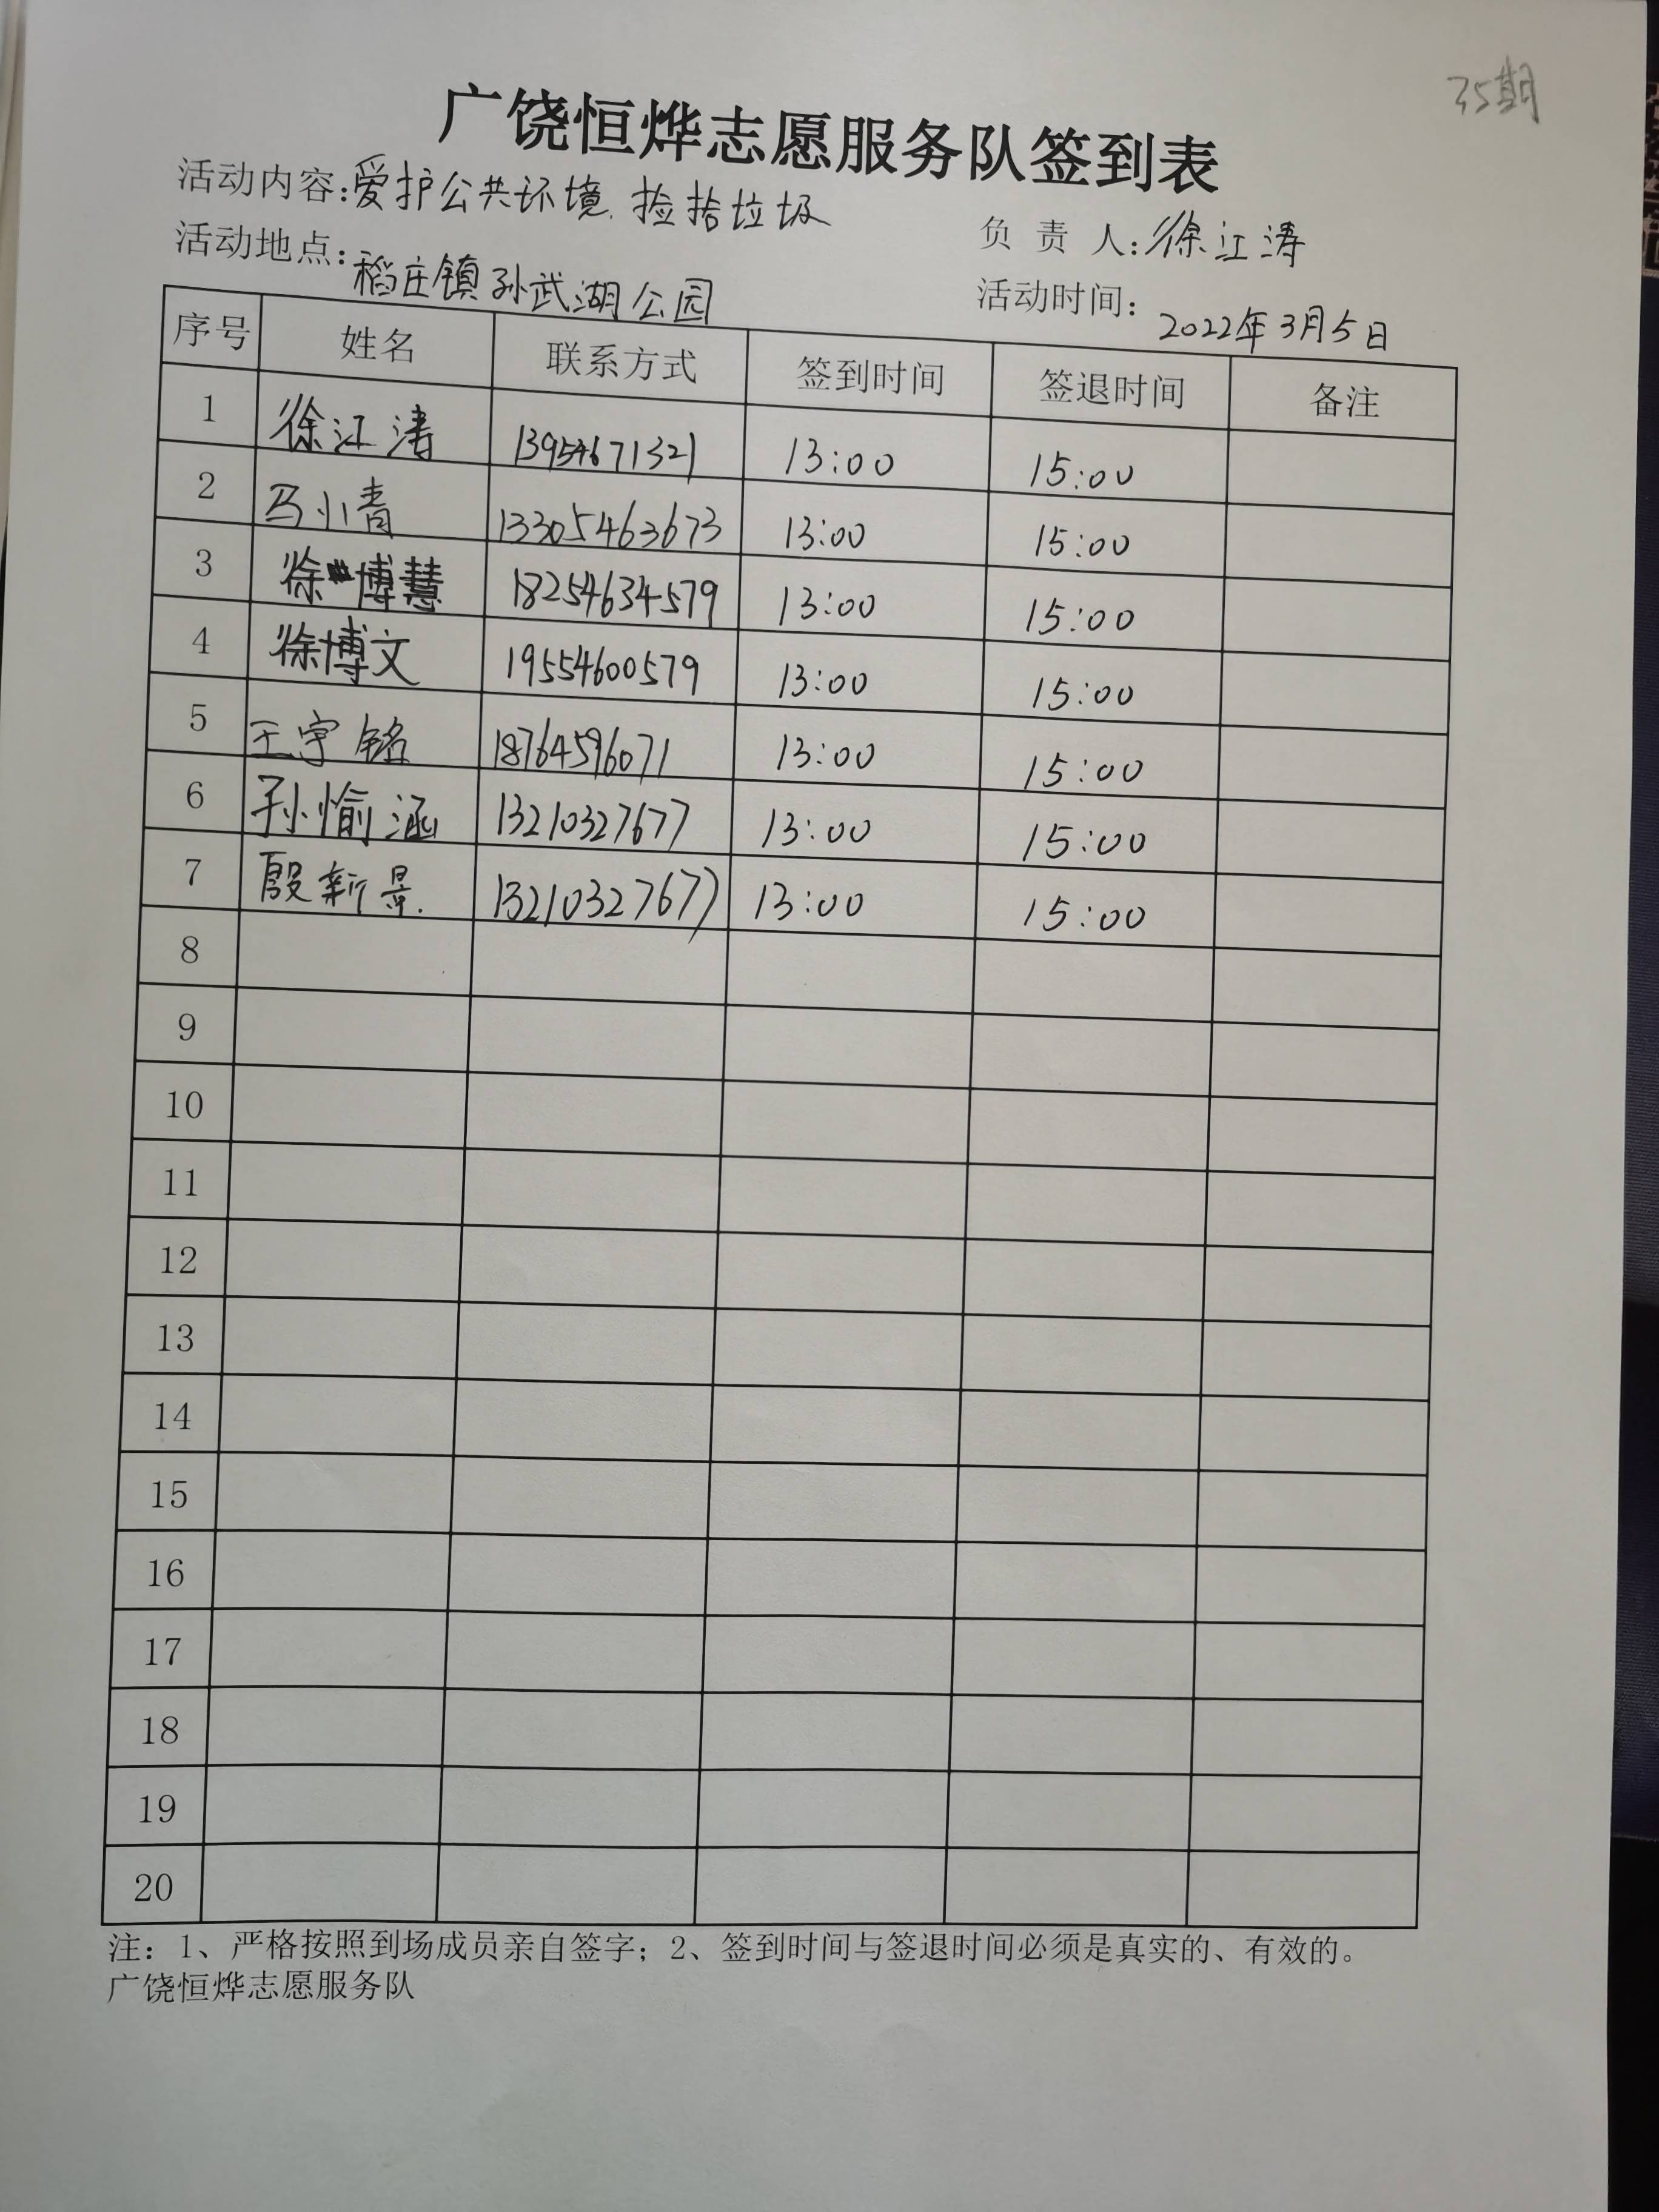 35期
广饶恒烨志愿服务队签到表
活动内容:爱护公共环境.捡拾垃圾
负 责 人:徐江涛
活动地点:稻庄镇孙武湖公园
活动时间:2022年3月5日
序号 姓名 联系方式 签到时间 签退时间 备注
1 徐江涛 13954671321 13:00 15:00
2 马小青 13305463673 13:00 15:00
3 徐博慧 18254634579 13:00 15:00
4 徐博文 19554600579 13:00 15:00
5 王宇铭 18764596071 13:00 15:00
6 孙愉涵 13210327677 13:00 15:00
7 殷新景. 13210327677 13:00 15:00
8
9
10
11
12
13
14
15
16
17
18
19
20
注：1、严格按照到场成员亲自签字；2、签到时间与签退时间必须是真实的、有效的。
广饶恒烨志愿服务队